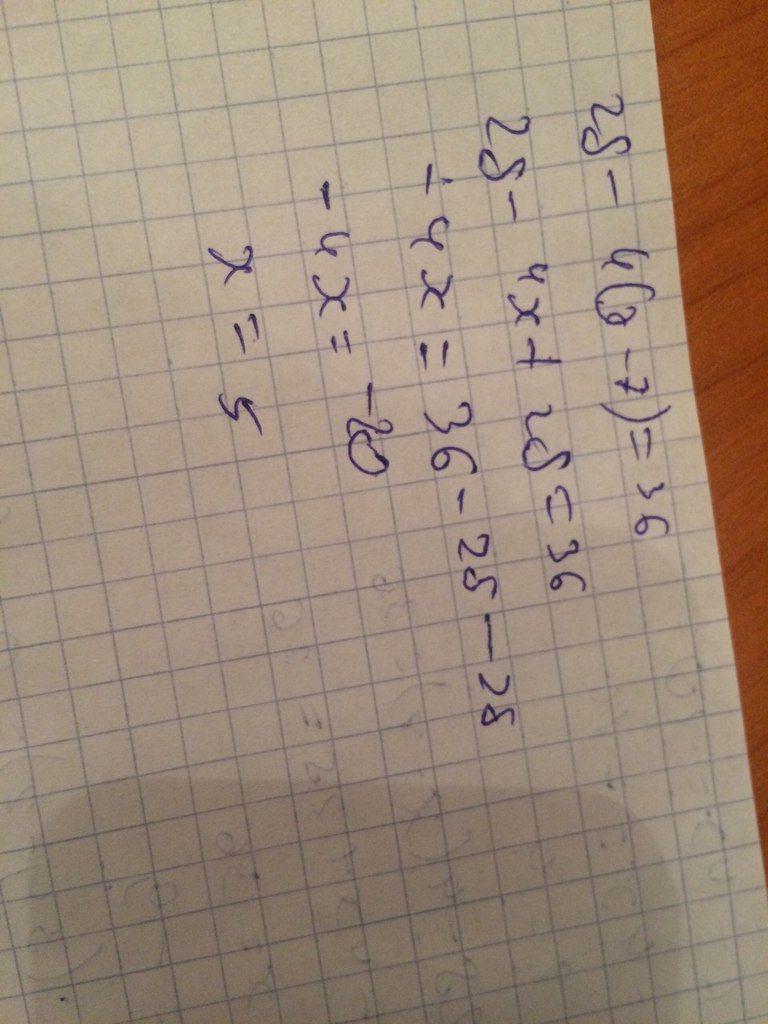 28 - 4(9 - 7) = 36
28 - 4x + 28 = 36
- 4x = 36 - 28 - 28
- 4x = -20
x = 5